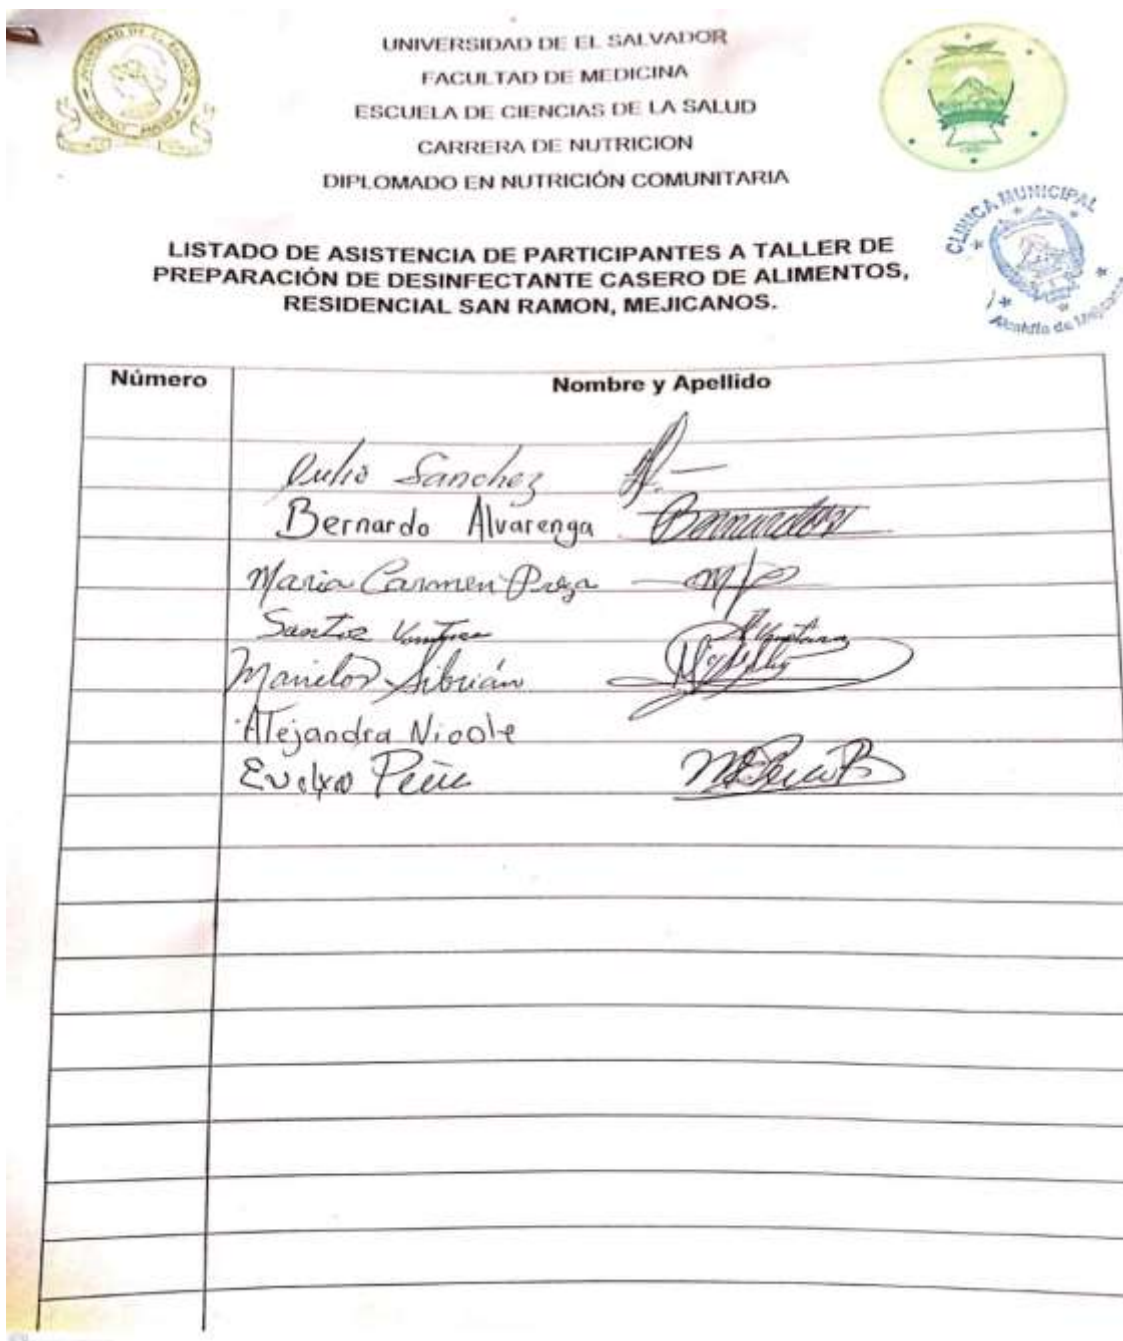 UNIVERSIDAD DE EL SALVADOR
FACULTAD DE MEDICINA
ESCUELA DE CIENCIAS DE LA SALUD
CARRERA DE NUTRICION
DIPLOMADO EN NUTRICIÓN COMUNITARIA
CLINICA MUNICIPAL
Alcaldía de
LISTADO DE ASISTENCIA DE PARTICIPANTES A TALLER DE
PREPARACIÓN DE DESINFECTANTE CASERO DE ALIMENTOS,
RESIDENCIAL SAN RAMON, MEJICANOS.
Número Nombre y Apellido
Sanchez
Bernardo Alvarenga
Maria Carmen
Santos
Sibrián
Alejandra Nicole
Evelyn Peña